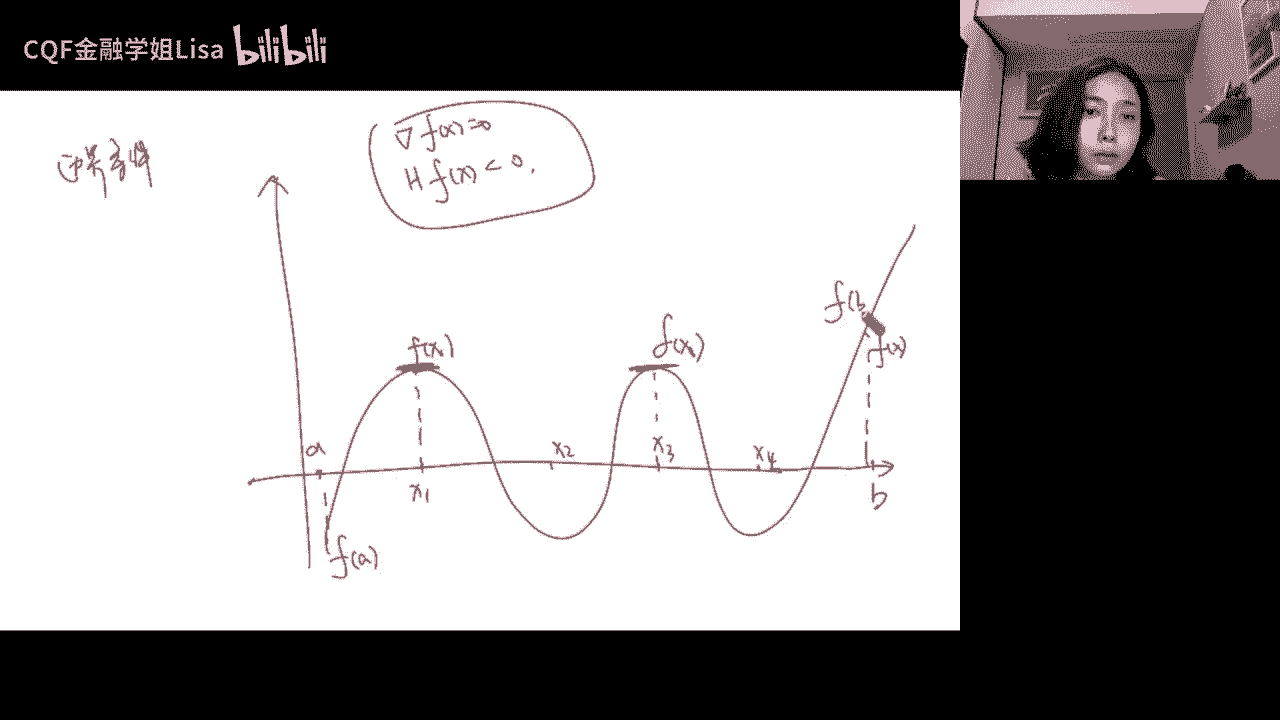 CQF金融学姐Lisa bilibili
边界条件
∇f(x)=0
H f(x) < 0.
f(b
f(x)
f(x₁)
f(x₃)
a
x₂
x₃
x₄
x₁
b
f(a)